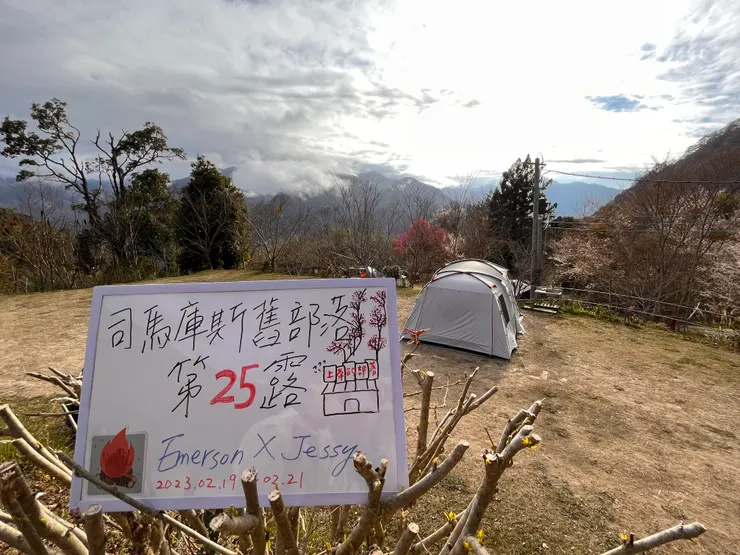 司馬庫斯舊部落
第25露
上帝的部落
Emerson X Jessy
2023.02.19 02.21